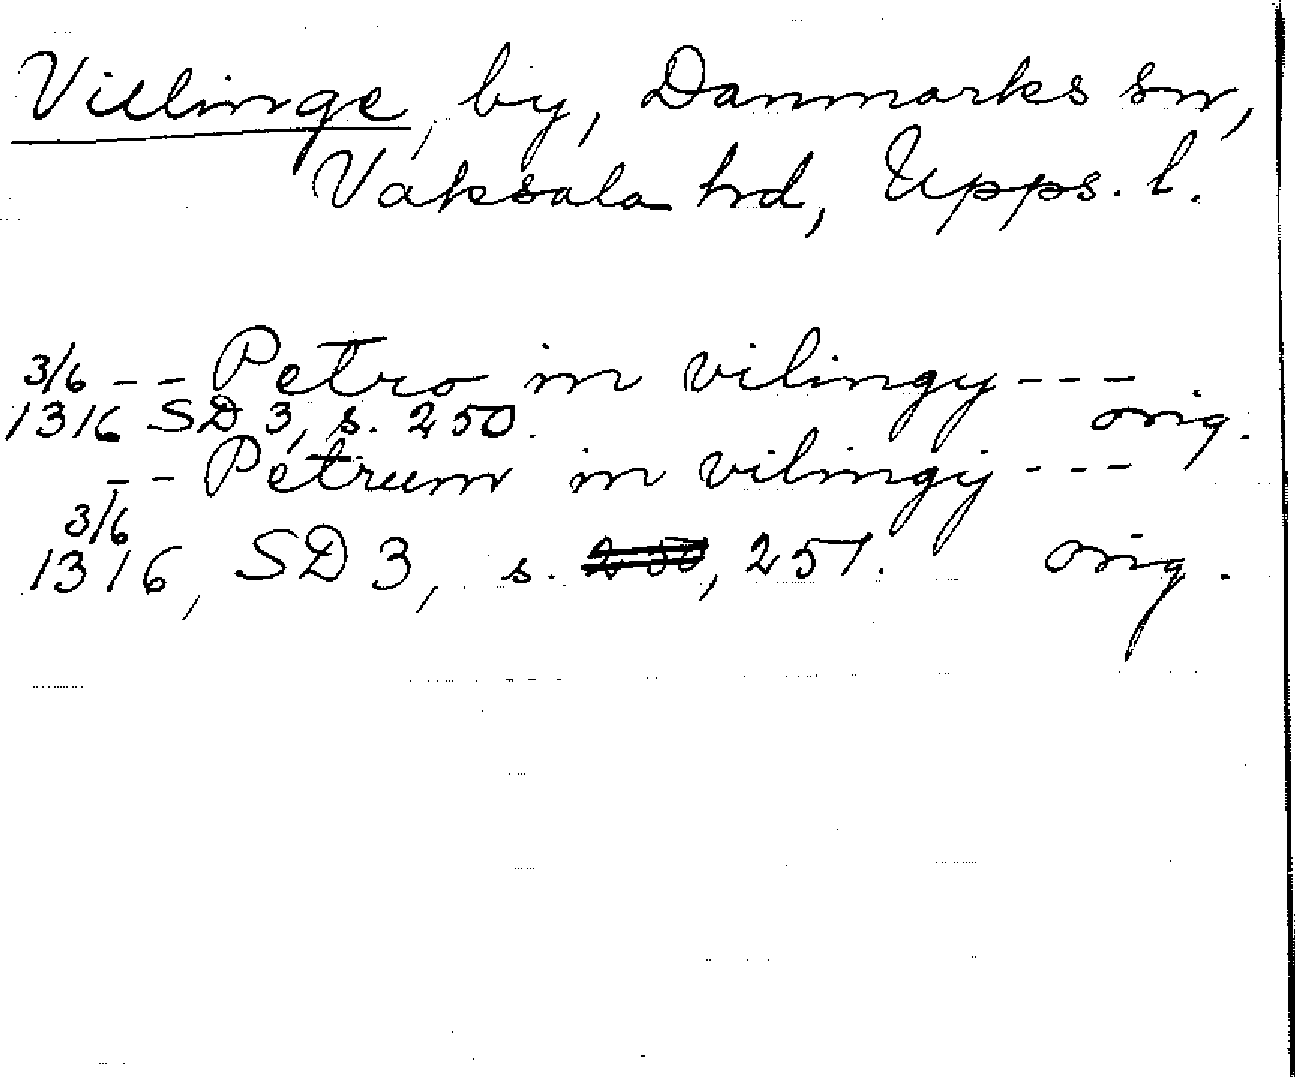 Villinge, by, Danmarks sn,
Vaksala hd, Upps. l.
3/6 -- Petro in vilingy --- orig.
1316 SD 3, s. 250.
-- Petrum in vilingy ---
3/6
1316, SD 3, s. 250, 251. orig.